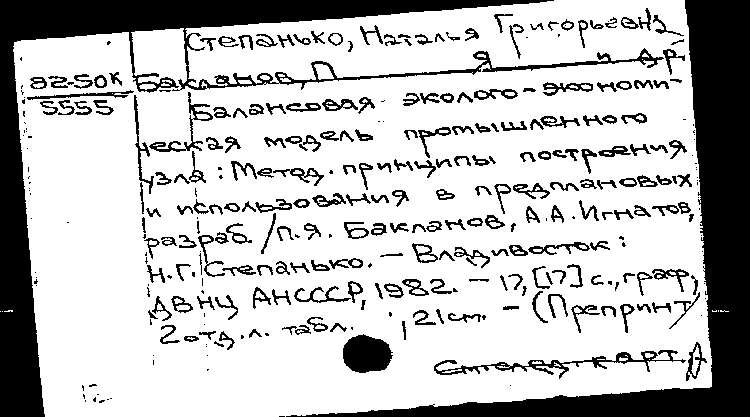 Степанько, Наталья Григорьевна
82-50К Бакланов, П Я и др.
5555 Балансовая эколого-экономи-
ческая модель промышленного
узла: Метод. принципы построения
и использования в предплановых
разраб. / П.Я. Бакланов, А.А. Игнатов,
Н.Г. Степанько. – Владивосток:
ДВНЦ АНСССР, 1982. – 17, [17] с., граф.,
2 отд. л. табл. ; 21 см. – (Препринт/
См. след. карт.
12